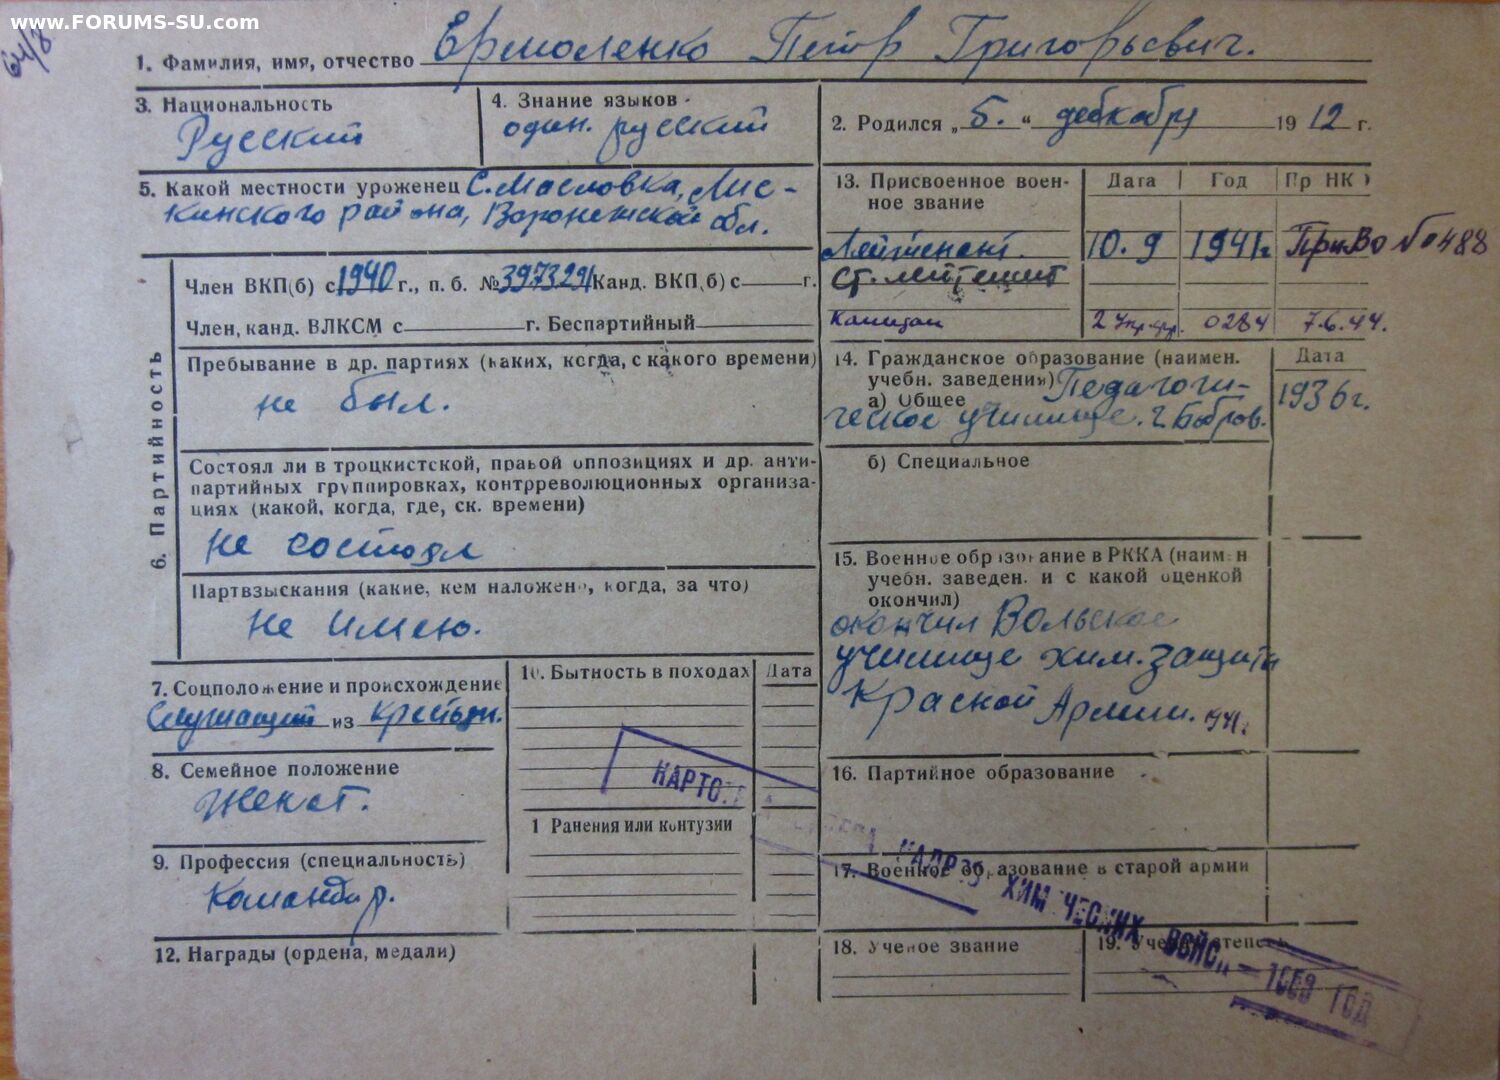 www.FORUMS-SU.com
64/8
1. Фамилия, имя, отчество Ермоленко Петр Григорьевич.
3. Национальность
Русский
4. Знание языков
один. русский
2. Родился „5.“ дебкабру 1912 г.
5. Какой местности уроженец С. Масловка, Лис-
кинского района, Воронежской обл.
13. Присвоенное воен-
ное звание
Дата Год Пр НК
Лейтенант. 10.9 1941г ПриВо №0488
Ст. лейтенант
Капитан 2 Укр.фр. 0284 7.6.44.
6. Партийность
Член ВКП(б) с 1940 г., п. б. № 3973291 Канд. ВКП(б) с г.
Член, канд. ВЛКСМ с г. Беспартийный
Пребывание в др. партиях (каких, когда, с какого времени)
не был.
Состоял ли в троцкистской, правой оппозициях и др. анти-
партийных группировках, контрреволюционных организа-
циях (какой, когда, где, ск. времени)
не состоял
Партвзыскания (какие, кем наложено, когда, за что)
не имею.
14. Гражданское образование (наимен.
учебн. заведения) Педагоги-
а) Общее
ческое училище. г. Бобров.
Дата
1936г.
б) Специальное
15. Военное образование в РККА (наимен
учебн. заведен. и с какой оценкой
окончил)
окончил Вольское
училище хим. защиты
Красной Армии. 1941г.
7. Соцположение и происхождение
Служащий из крестьян.
8. Семейное положение
Женат.
9. Профессия (специальность)
Командир.
10. Бытность в походах Дата
1 Ранения или контузии
12. Награды (ордена, медали)
16. Партийное образование
17. Военное образование в старой армии
18. Ученое звание
19. Ученая степень
КАРТОТЕКА КАДРОВ ХИМИЧЕСКИХ ВОЙСК
ГОД